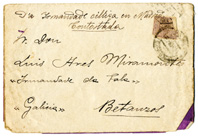 De Irmandade céltiga en Madri
Contestada
Sr. Don
Luis Ares Miramontes
"Irmandade da Fala"
"Galicia" Betanzos